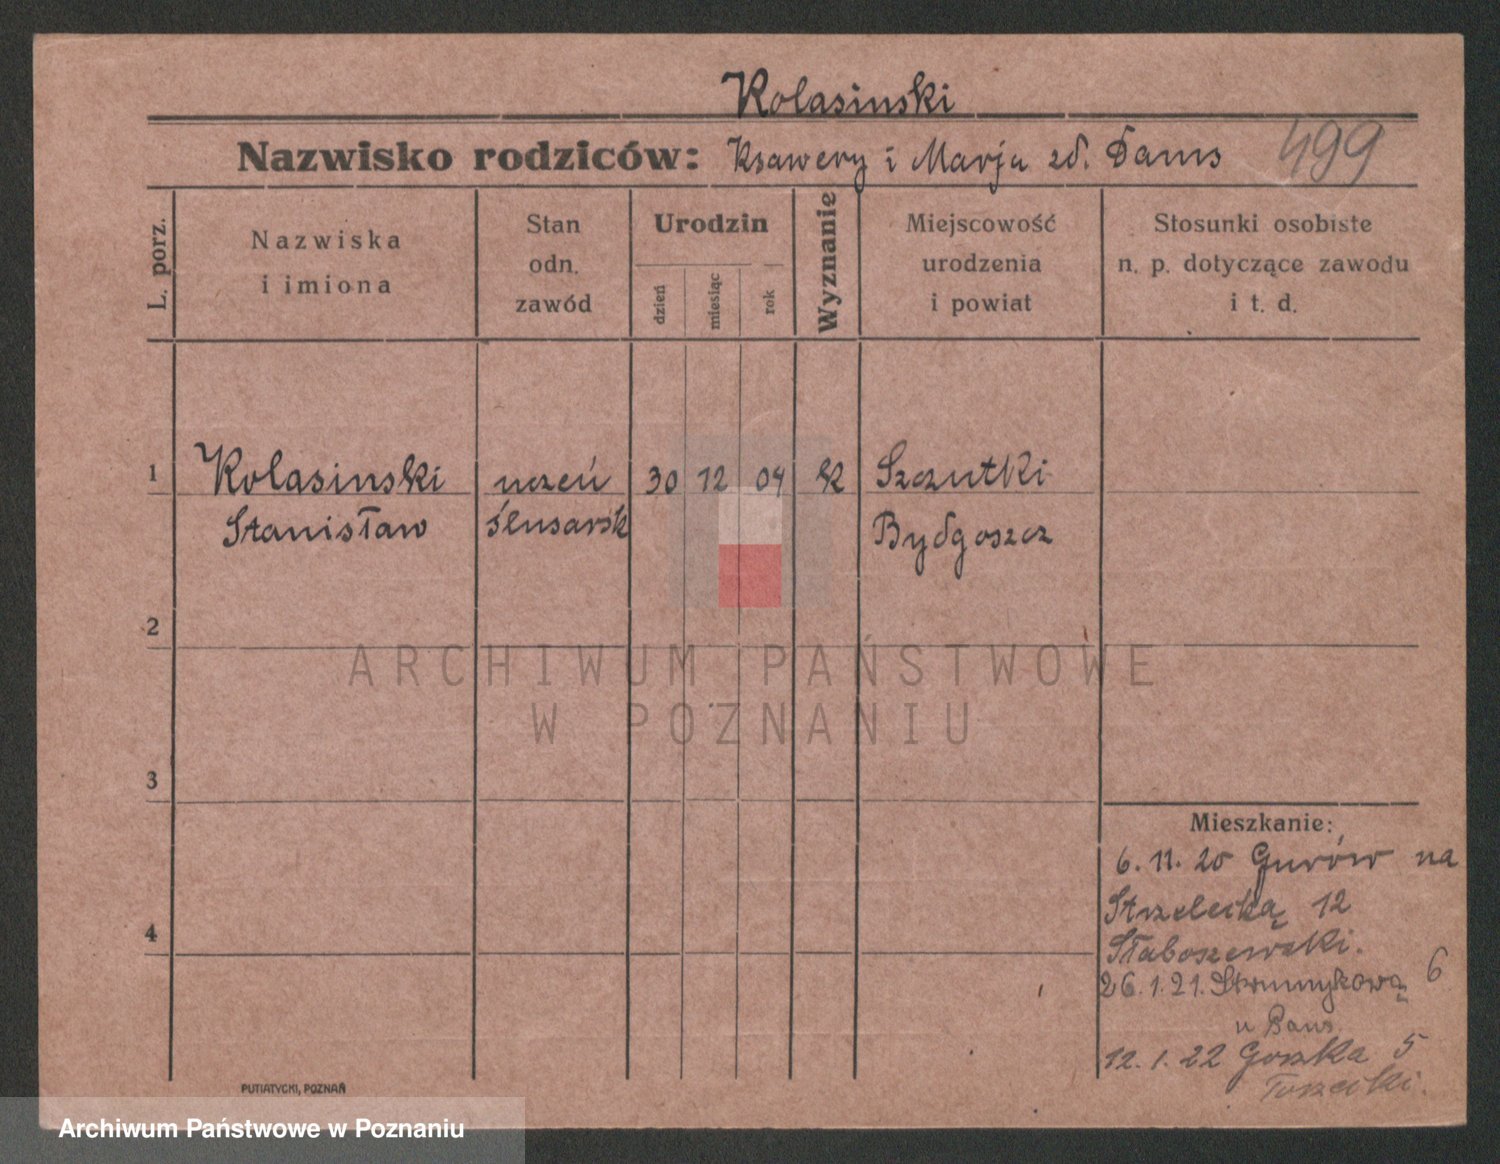 Kolasinski
Nazwisko rodziców: Ksawery i Marja zd. Dams 499
L. porz.
Nazwiska
i imiona
Stan
odn.
zawód
Urodzin
dzień
miesiąc
rok
Wyznanie
Miejscowość
urodzenia
i powiat
Stosunki osobiste
n. p. dotyczące zawodu
i t. d.
1 Kolasinski uczeń 30 12 04 Szczutki
Stanisław ślusarsk Bydgoszcz
2
3
4
Mieszkanie:
6. 11. 20 Gurów na
Strzelecką 12
Słaboszewski.
26. 1. 21. Strumykową 6
u
12. 1. 22 5
PUTIATYCKI, POZNAŃ
ARCHIWUM PAŃSTWOWE
W POZNANIU
Archiwum Państwowe w Poznaniu